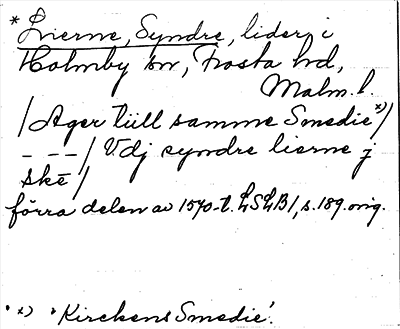 * Lierne, Syndre, liderj i
Holmby sn, Frosta hd,
Malm. l.
/ Ager till samme Smedie *)/
- - - / Vdj syndre lierne j
skē /
förra delen av 1570-t. LSLB1, s. 189. orig.
* *) 'Kirckens Smedie'.